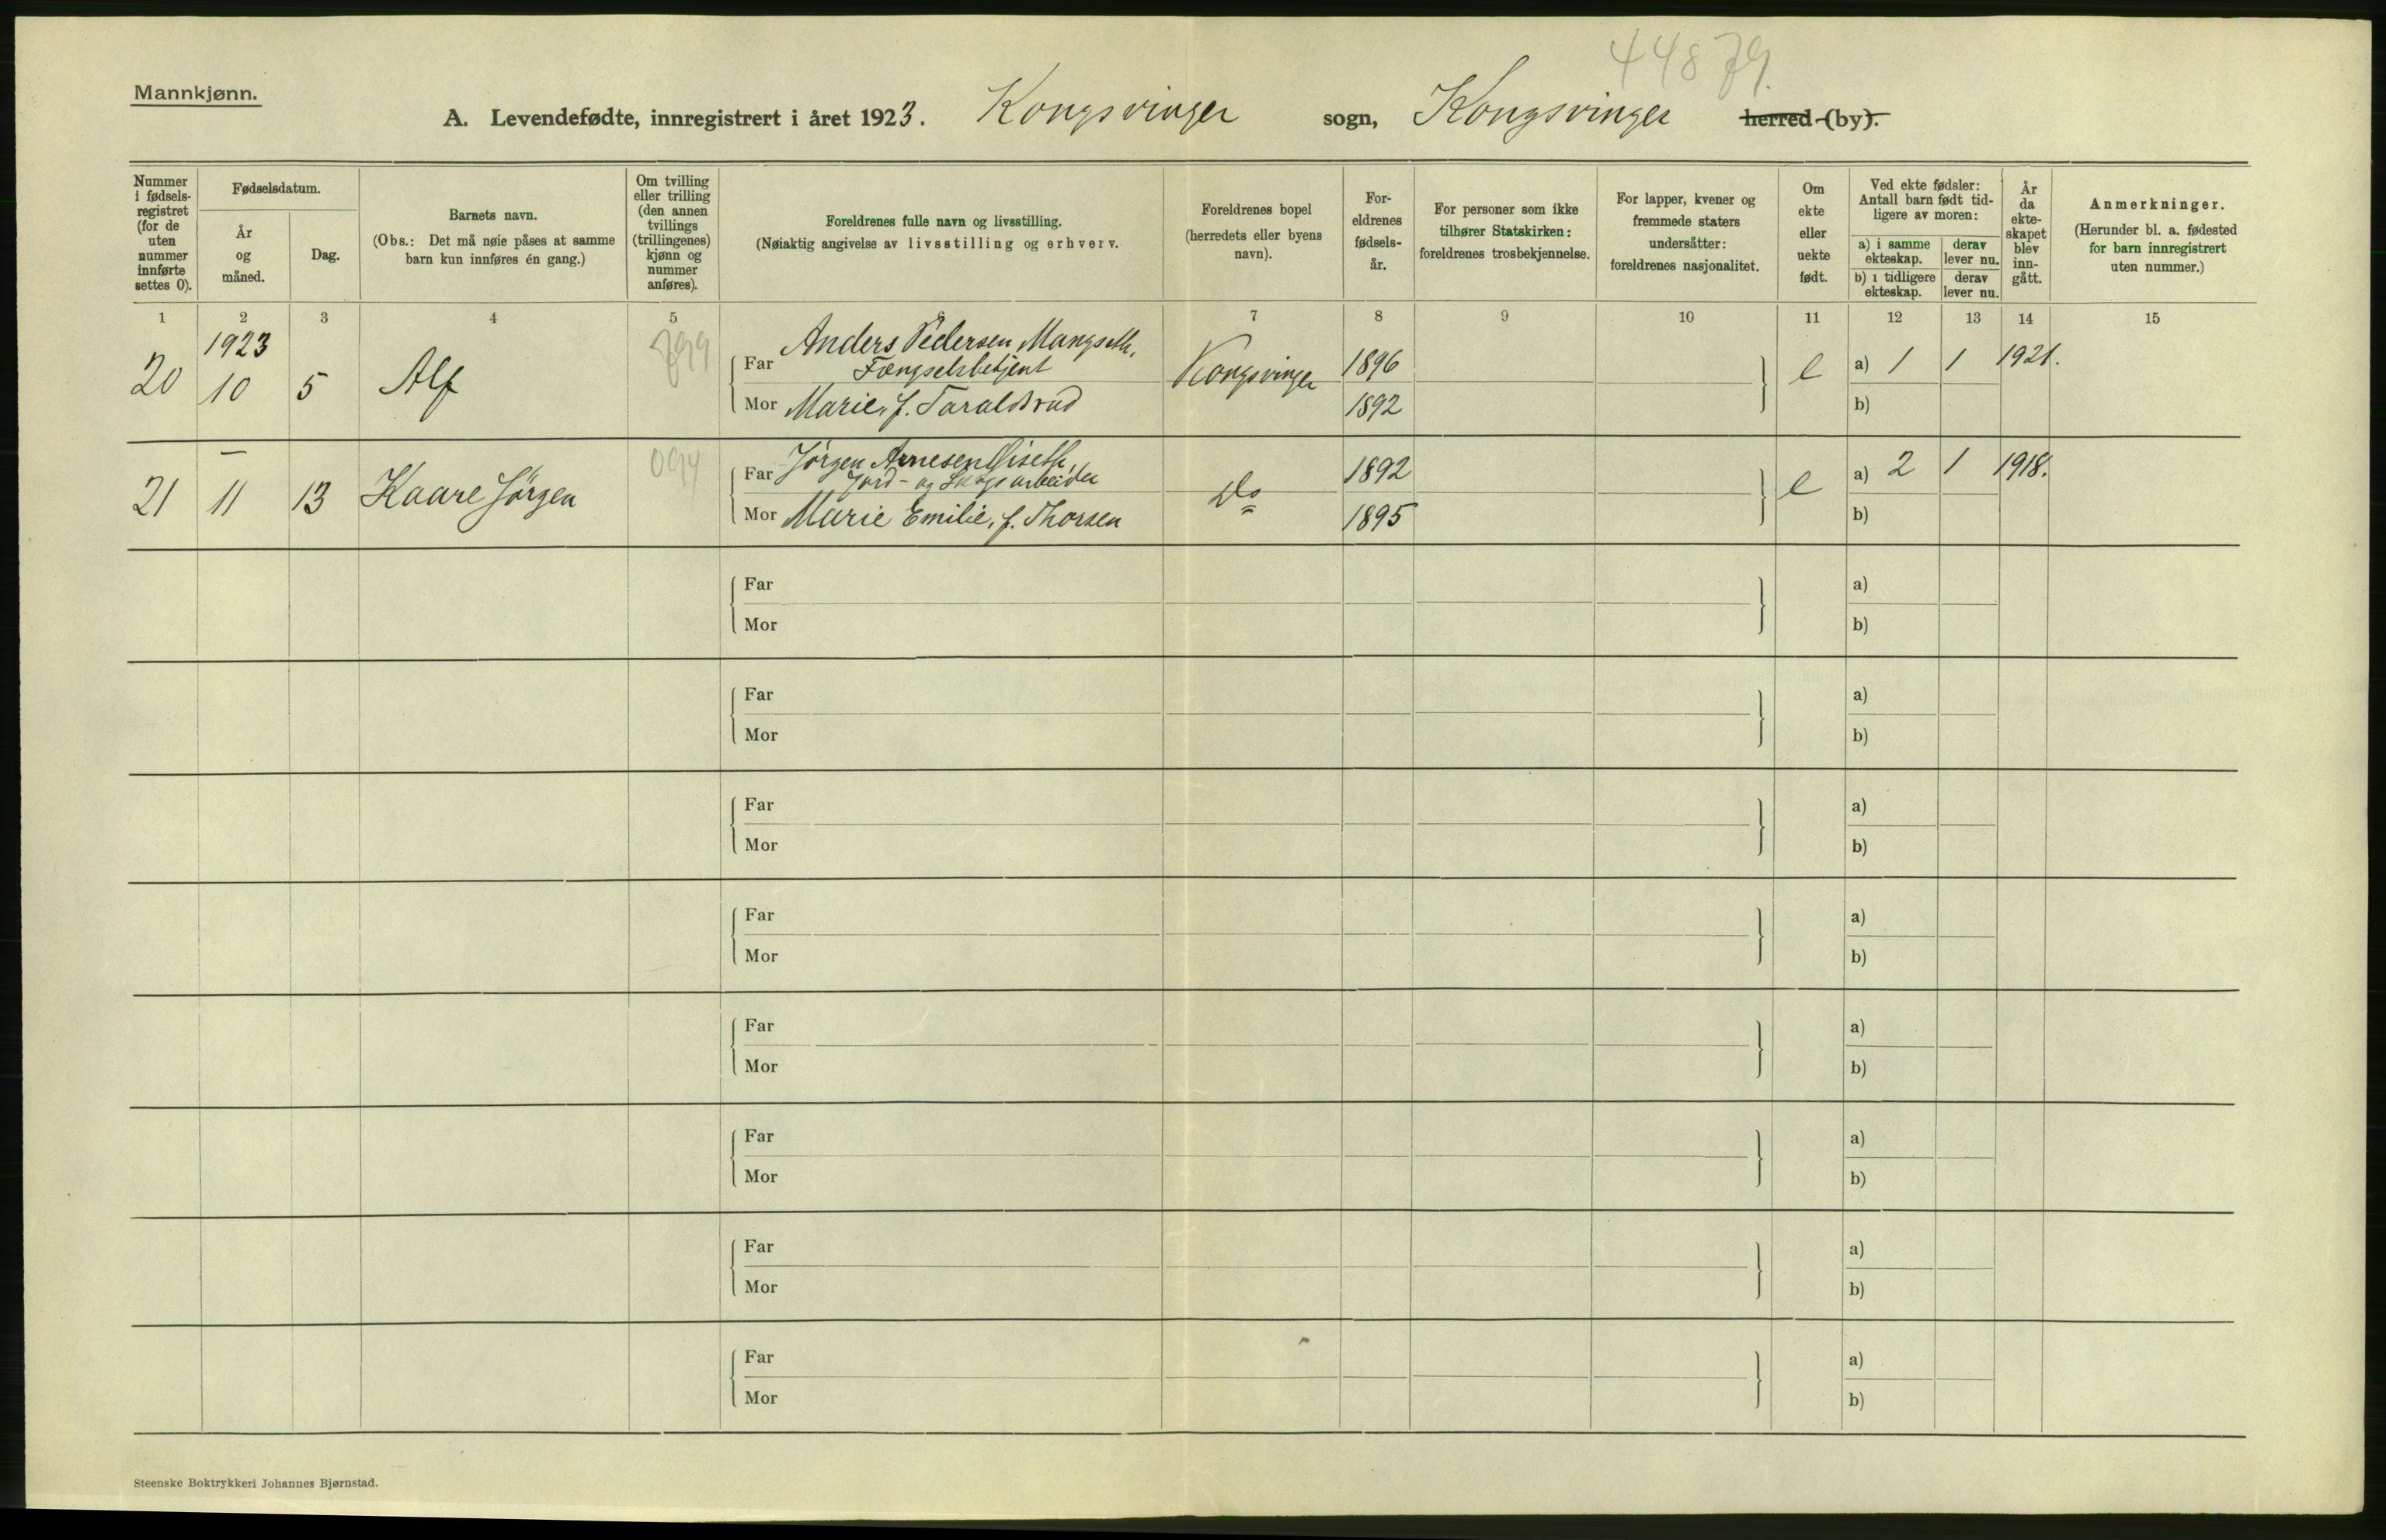 44879.
Mannkjønn.
A. Levendefødte, innregistrert i året 1923. Kongsvinger sogn, Kongsvinger herred (by).
Nummer i fødsels-registret (for de uten nummer innførte settes 0).
Fødselsdatum.
År og måned.
Dag.
Barnets navn.
(Obs.: Det må nøie påses at samme barn kun innføres én gang.)
Om tvilling eller trilling (den annen tvillings (trillingenes) kjønn og nummer anføres).
Foreldrenes fulle navn og livsstilling.
(Nøiaktig angivelse av livsstilling og erhverv.
Foreldrenes bopel (herredets eller byens navn).
For-eldrenes fødsels-år.
For personer som ikke tilhører Statskirken: foreldrenes trosbekjennelse.
For lapper, kvener og fremmede staters undersåtter: foreldrenes nasjonalitet.
Om ekte eller uekte født.
Ved ekte fødsler: Antall barn født tid-ligere av moren:
a) i samme ekteskap.
derav lever nu.
b) i tidligere ekteskap.
derav lever nu.
År da ekte-skapet blev inn-gått.
Anmerkninger.
(Herunder bl. a. fødested for barn innregistrert uten nummer.)
1 2 3 4 5 6 7 8 9 10 11 12 13 14 15
1923
20 10 5 Alf 899
Far Anders Pedersen Mangseth, Fængselsbetjent Kongsvinger 1896 e a) 1 1 1921.
Mor Marie, f. Taraldsrud 1892 b)
21 — 11 13 Kaare Jörgen 094
Far Jörgen Arnesen Jord- og Skogsarbeider Do 1892 e a) 2 1 1918.
Mor Marie Emilie, f. Thorsen 1895 b)
Far a)
Mor b)
Far a)
Mor b)
Far a)
Mor b)
Far a)
Mor b)
Far a)
Mor b)
Far a)
Mor b)
Far a)
Mor b)
Far a)
Mor b)
Steenske Boktrykkeri Johannes Bjørnstad.